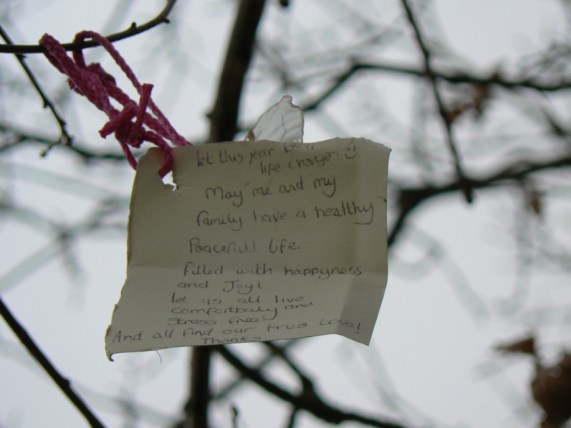 let this year be a
life changer
May me and my
family have a healthy
Peacefull life.
filled with happyness
and Joy!
let us all live
comfortbaly and
stress free!
And all find our true Love!
Thanks